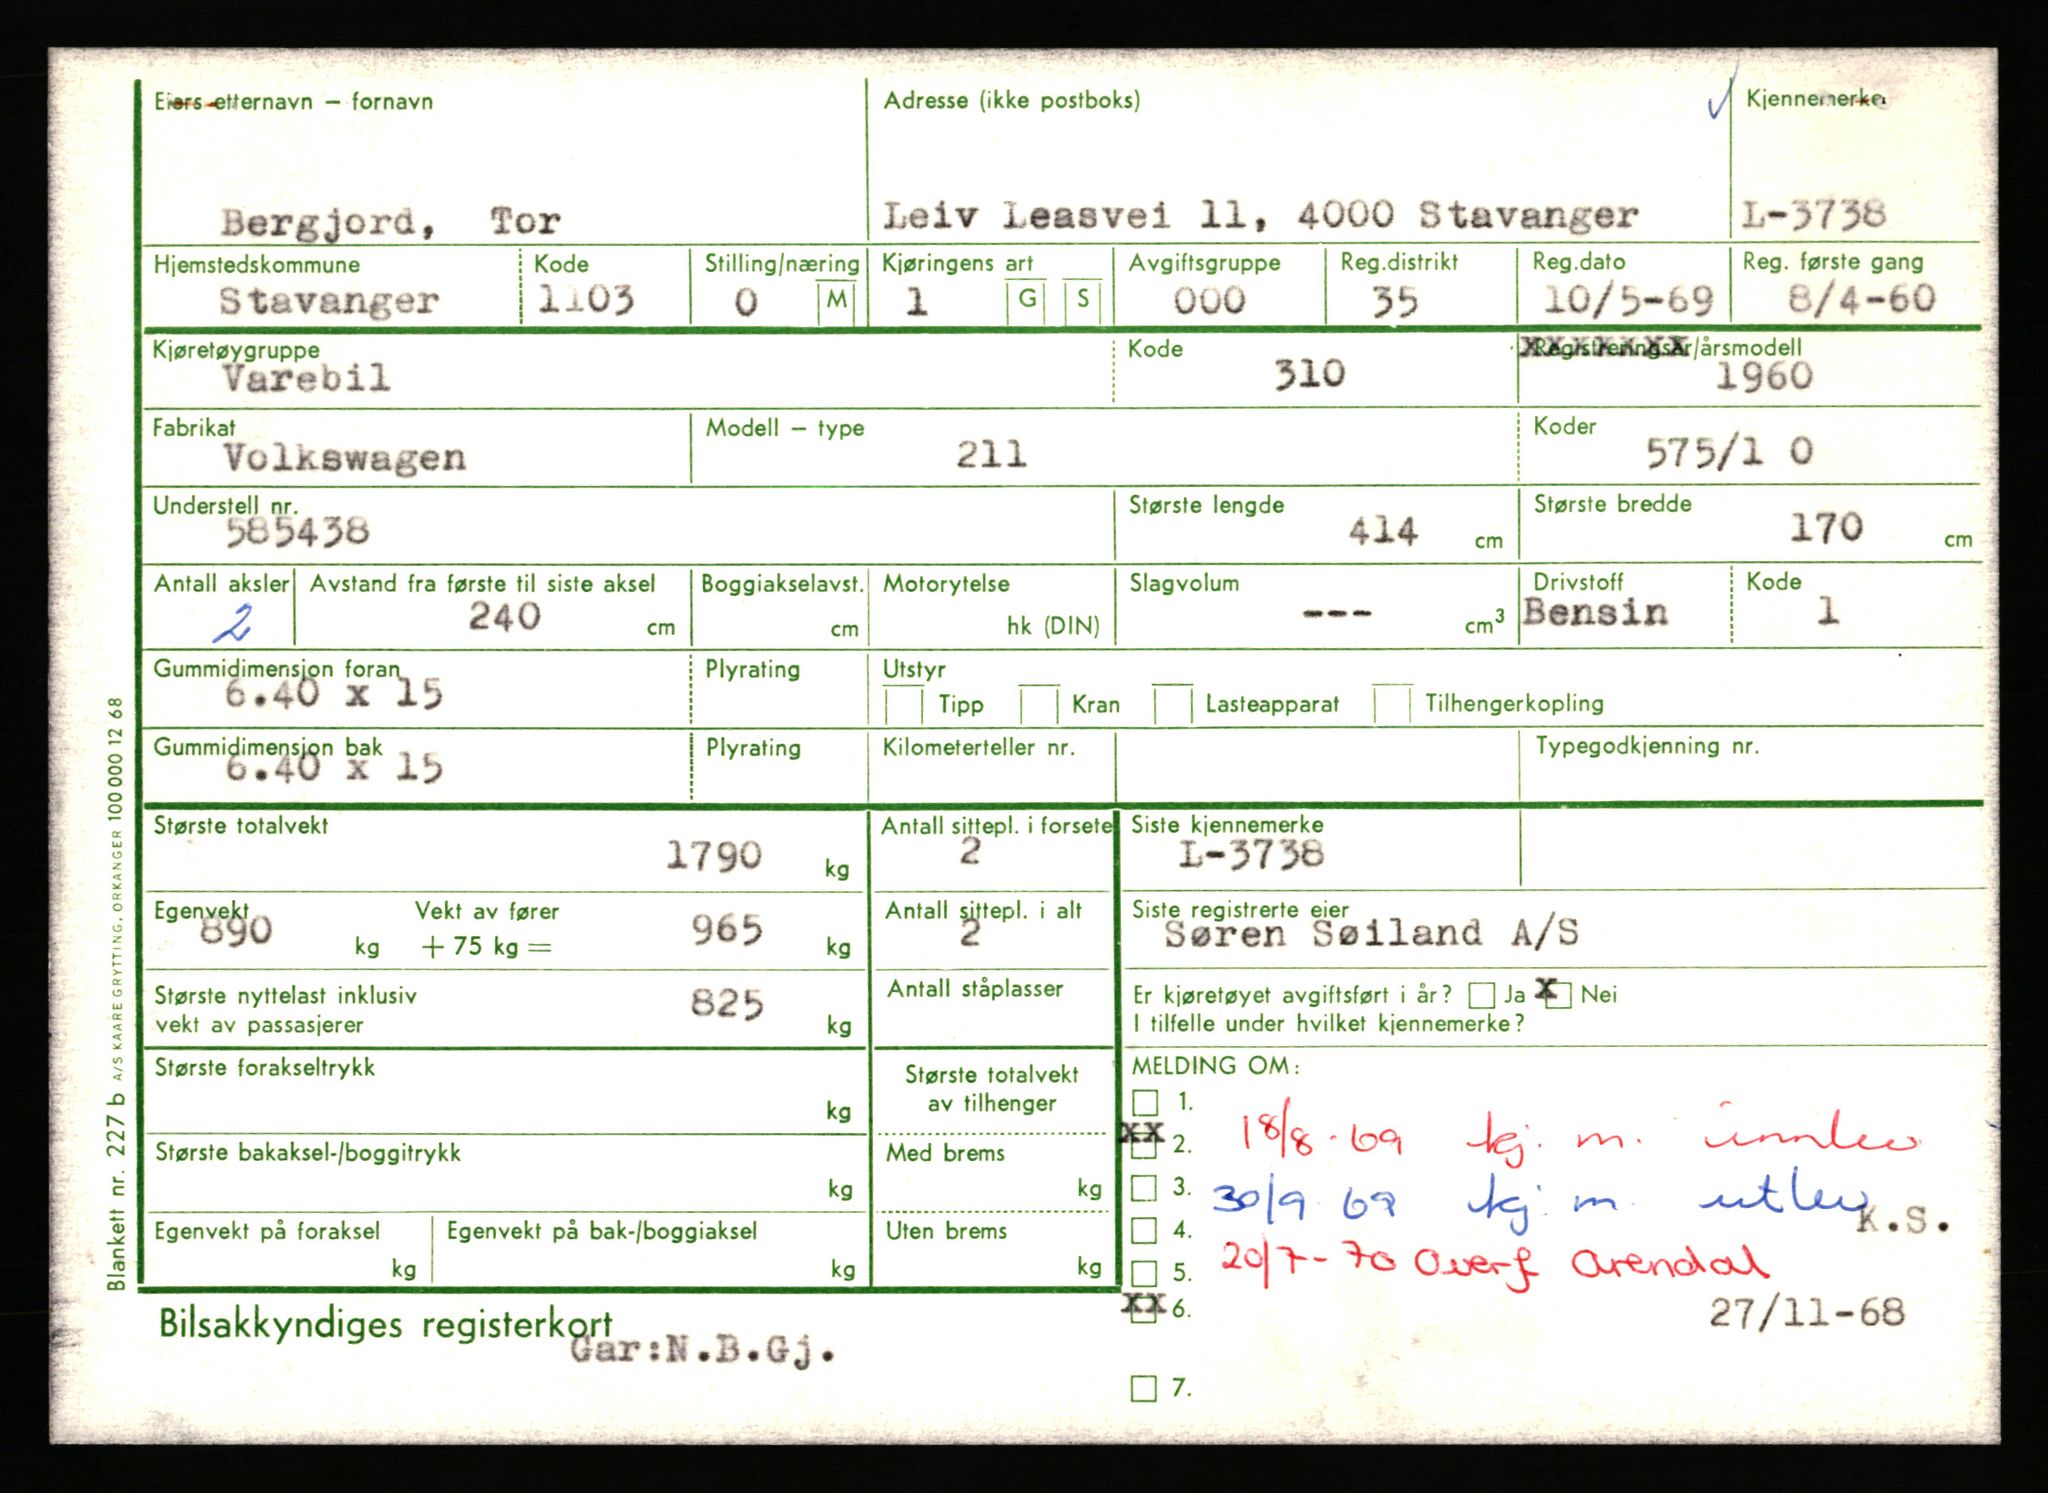 Eiers etternavn – fornavn Adresse (ikke postboks) Kjennemerke
Bergjord, Tor Leiv Leasvei 11, 4000 Stavanger L-3738
Hjemstedskommune Kode Stilling/næring Kjøringens art Avgiftsgruppe Reg.distrikt Reg.dato Reg. første gang
Stavanger 1103 0 M 1 G S 000 35 10/5-69 8/4-60
Kjøretøygruppe Kode Registreringsår/årsmodell
Varebil 310 1960
Fabrikat Modell – type Koder
Volkswagen 211 575/1 0
Understell nr. Største lengde Største bredde
585438 414 cm 170 cm
Antall aksler Avstand fra første til siste aksel Boggiakselavst. Motorytelse Slagvolum Drivstoff Kode
2 240 cm cm hk (DIN) --- cm³ Bensin 1
Gummidimensjon foran Plyrating Utstyr
6.40 x 15 Tipp Kran Lasteapparat Tilhengerkopling
Gummidimensjon bak Plyrating Kilometerteller nr. Typegodkjenning nr.
6.40 x 15
Største totalvekt Antall sittepl. i forsete Siste kjennemerke
1790 kg 2 L-3738
Egenvekt Vekt av fører Antall sittepl. i alt Siste registrerte eier
890 kg + 75 kg = 965 kg 2 Søren Søiland A/S
Største nyttelast inklusiv 825 Antall ståplasser Er kjøretøyet avgiftsført i år? Ja X Nei
vekt av passasjerer kg I tilfelle under hvilket kjennemerke?
Største forakseltrykk Største totalvekt MELDING OM:
kg av tilhenger 1.
Største bakaksel-/boggitrykk Med brems XX 2. 18/8-69 kj. m. innlev
kg kg 3. 30/9 69 kj. m. utlev
Egenvekt på foraksel Egenvekt på bak-/boggiaksel Uten brems 4. K.S.
kg kg kg 5. 20/7-70 Overf Arendal
XX 6. 27/11-68
Bilsakkyndiges registerkort
Gar:N.B.Gj.
7.
Blankett nr. 227 b A/S KAARE GRYTTING, ORKANGER 100 000 12 68